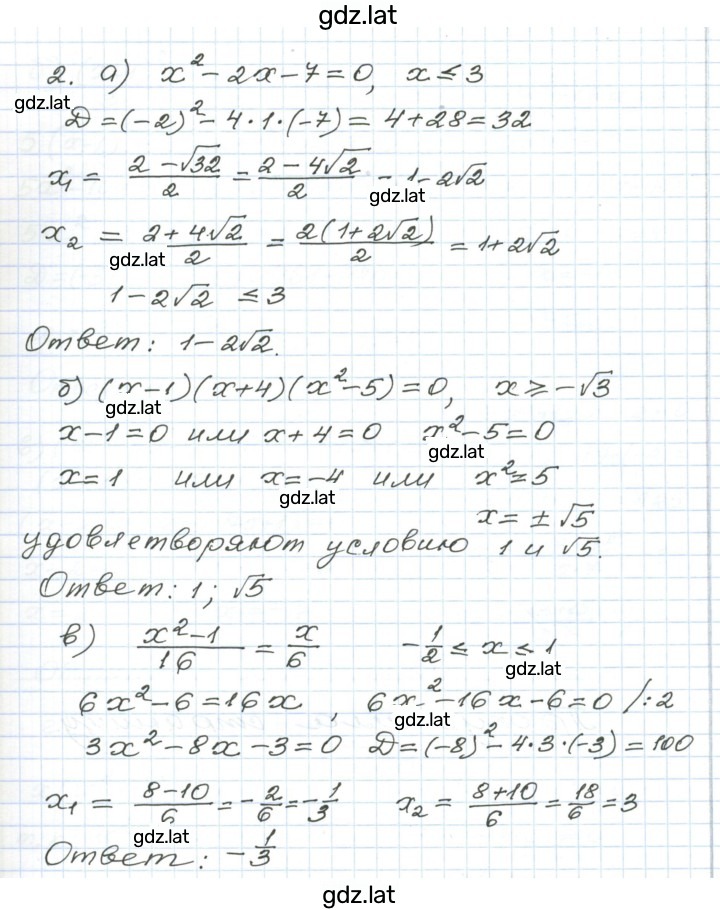 gdz.lat
2. а) x² - 2x - 7 = 0, x ≤ 3
gdz.lat
D = (-2)² - 4·1·(-7) = 4 + 28 = 32
x₁ = (2 - √32)/2 = (2 - 4√2)/2 - 1 - 2√2
gdz.lat
x₂ = (2 + 4√2)/2 = 2(1 + 2√2)/2 = 1 + 2√2
gdz.lat
1 - 2√2 ≤ 3
Ответ: 1 - 2√2.
б) (x - 1)(x + 4)(x² - 5) = 0, x ⩾ -√3
gdz.lat
x - 1 = 0 или x + 4 = 0 x² - 5 = 0
gdz.lat
x = 1 или x = -4 или x² = 5
gdz.lat
x = ± √5
удовлетворяют условию 1 и √5.
Ответ: 1; √5
в) (x² - 1)/16 = x/6 -1/2 ≤ x ≤ 1
gdz.lat
6x² - 6 = 16x, 6x² - 16x - 6 = 0 /:2
gdz.lat
3x² - 8x - 3 = 0 D = (-8)² - 4·3·(-3) = 100
x₁ = (8 - 10)/6 = -2/6 = -1/3 x₂ = (8 + 10)/6 = 18/6 = 3
gdz.lat
Ответ: -1/3
gdz.lat